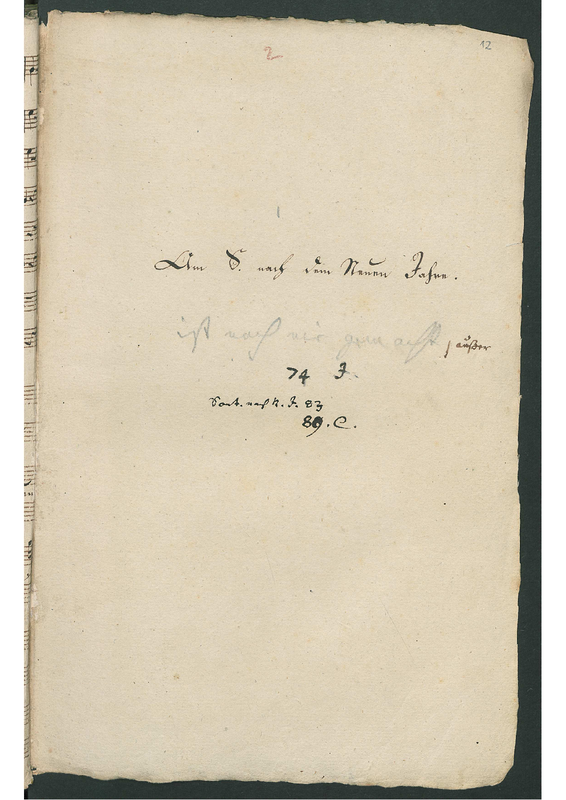 2
12
Am S. nach dem Neuen Jahre.
ist noch nie gemacht, außer
74 J.
Sont. nach N. J. 83
89. C.